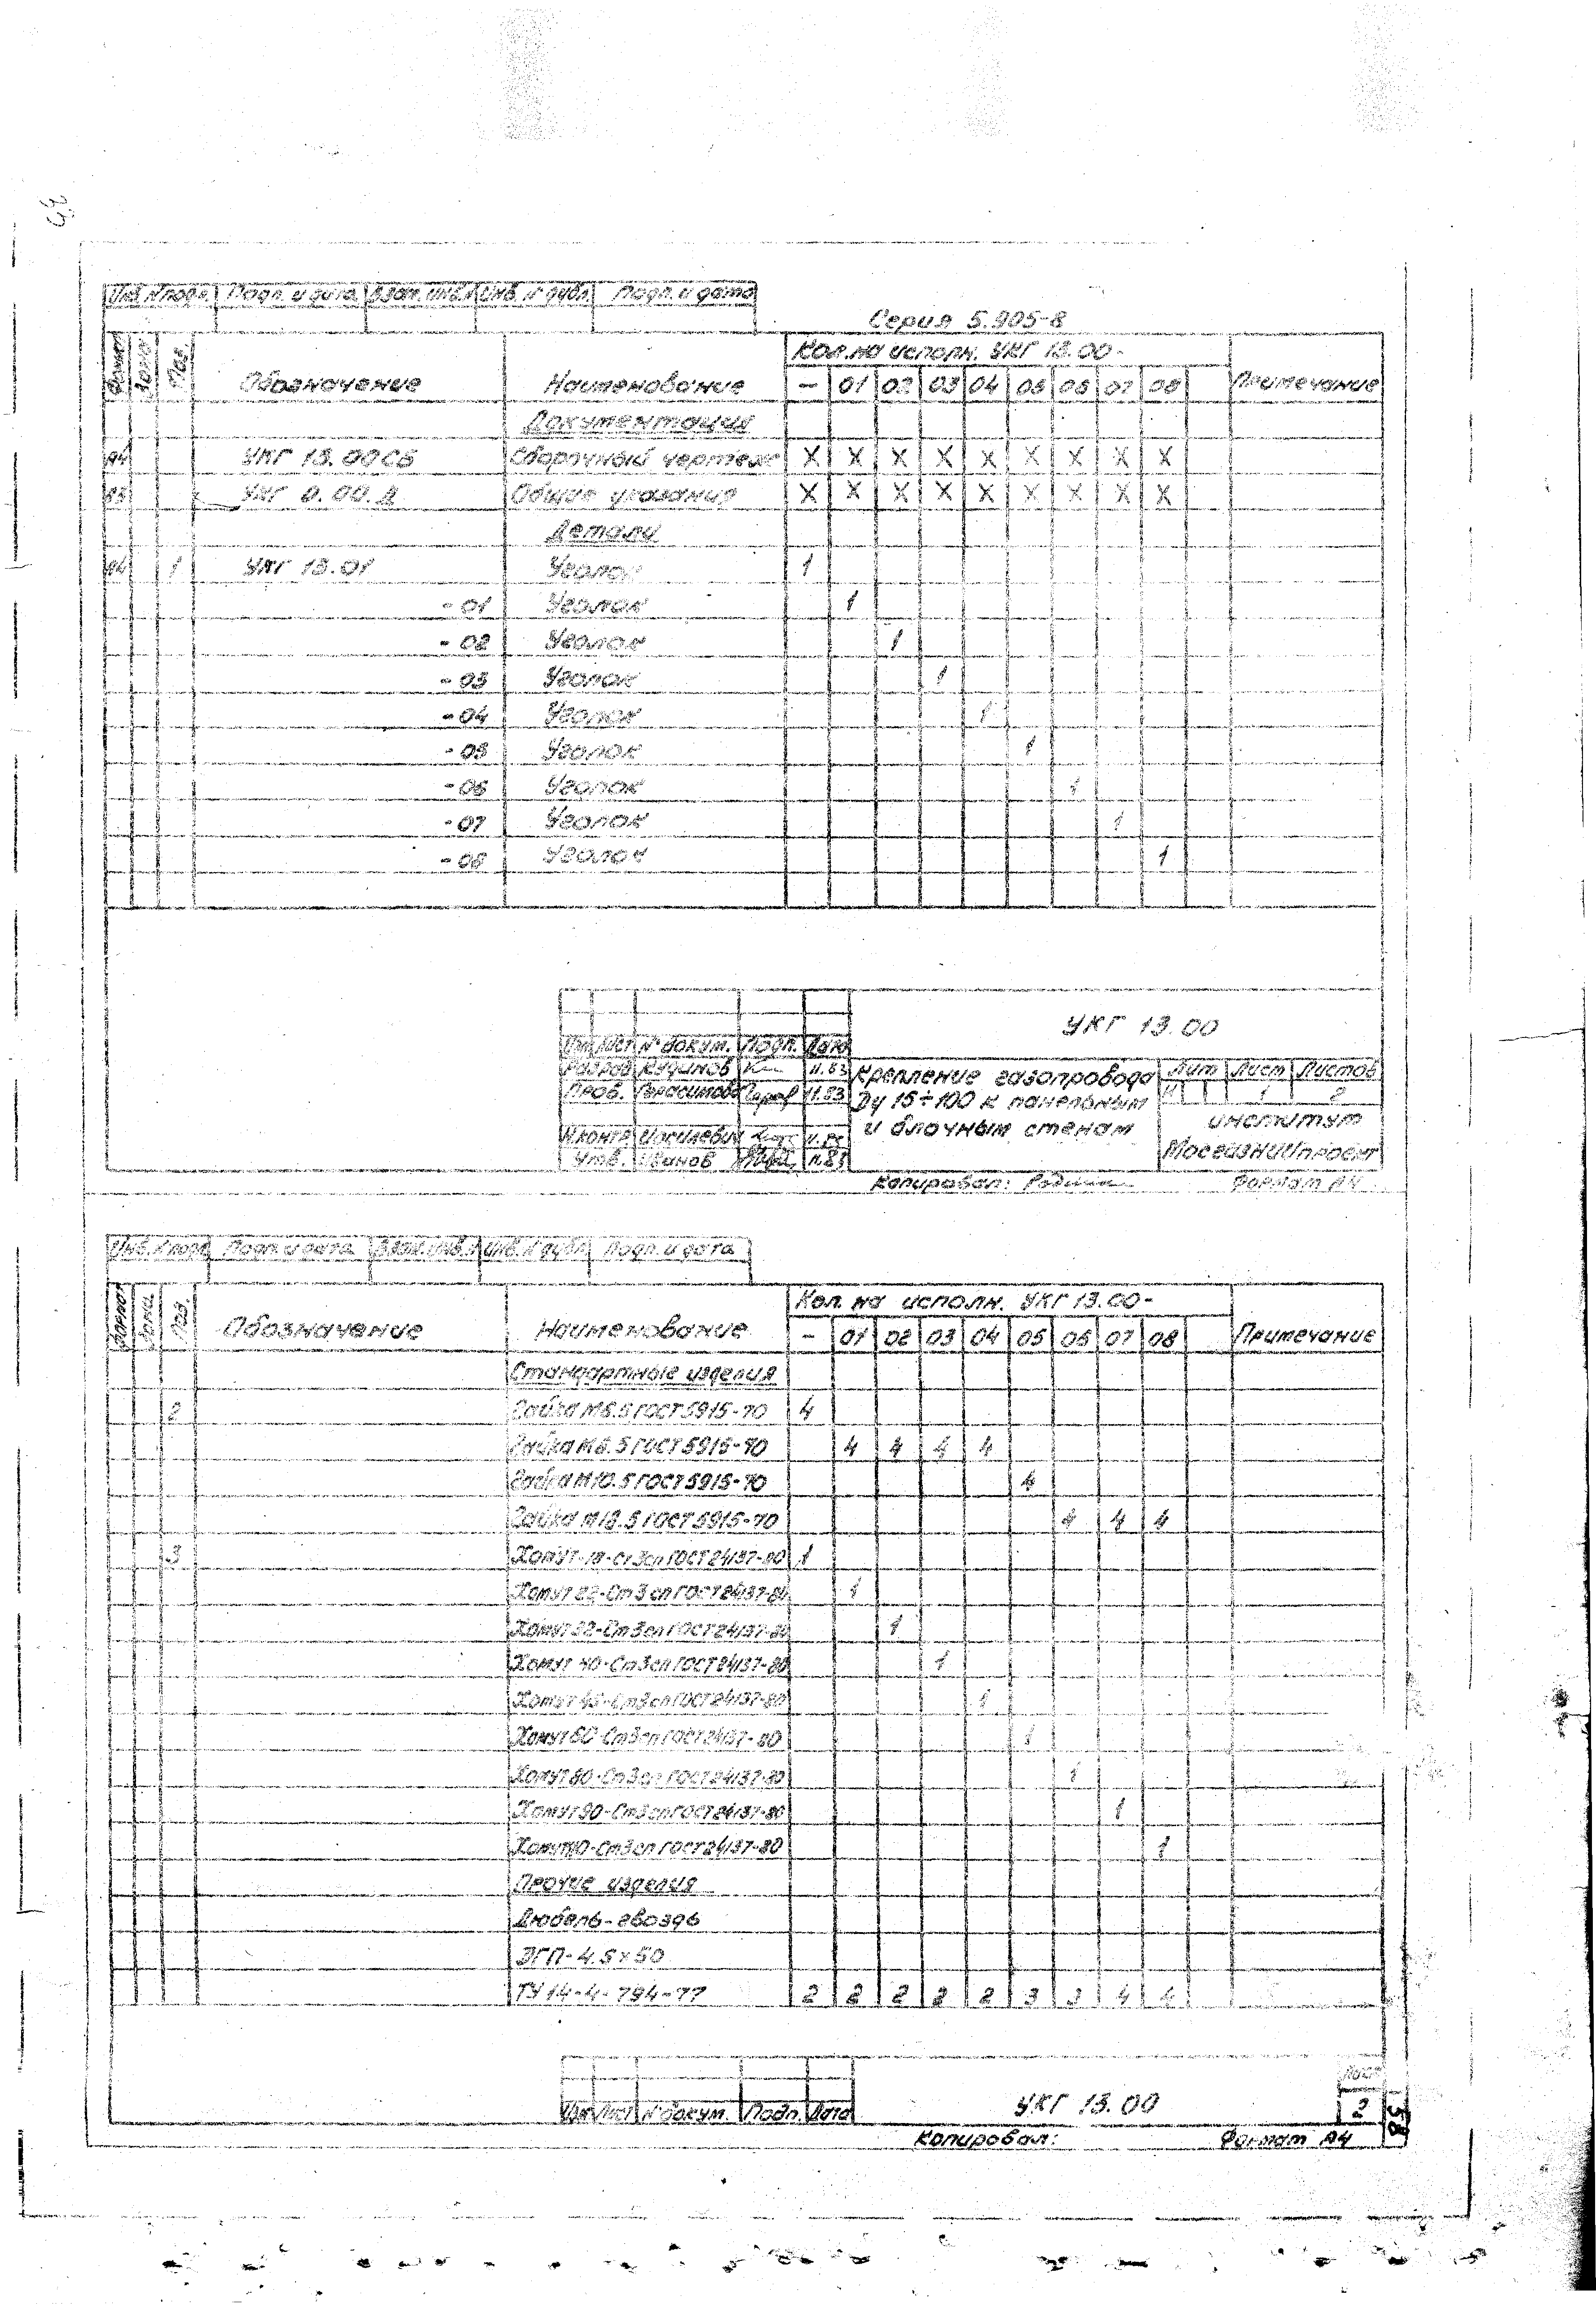 Инв. № подл. Подп. и дата Взам. инв. № Инв. № дубл. Подп. и дата
Серия 5.905-8
Формат Зона Поз. Обозначение Наименование Кол. на исполн. УКГ 13.00- Примечание
— 01 02 03 04 05 06 07 08
Документация
А4 УКГ 13.00СБ Сборочный чертеж X X X X X X X X X
УКГ 0.00.Д Общие указания X X X X X X X X X
Детали
А4 1 УКГ 13.01 Уголок 1
- 01 Уголок 1
- 02 Уголок 1
- 03 Уголок 1
- 04 Уголок 1
- 05 Уголок 1
- 06 Уголок 1
- 07 Уголок 1
- 08 Уголок 1
УКГ 13.00
Изм. Лист № докум. Подп. Дата
Разраб. Кудинов 11.83
Пров. Герасимова 11.83
Н.контр.
Утв. Иванов 11.83
Крепление газопровода
Ду 15÷100 к панельным
и блочным стенам
Лит. Лист Листов
И 1 2
институт
МосгазНИИпроект
Копировал: Формат А4
Инв. № подл. Подп. и дата Взам. инв. № Инв. № дубл. Подп. и дата
Формат Зона Поз. Обозначение Наименование Кол. на исполн. УКГ 13.00- Примечание
— 01 02 03 04 05 06 07 08
Стандартные изделия
2 Гайка М6.5 ГОСТ 5915-70 4
Гайка М8.5 ГОСТ 5915-70 4 4 4 4
Гайка М10.5 ГОСТ 5915-70 4
Гайка ГОСТ 5915-70 4 4 4
3 Хомут-18-Ст3сп ГОСТ 24137-80 1
Хомут 22-Ст3сп ГОСТ 24137-80 1
Хомут 32-Ст3сп ГОСТ 24137-80 1
Хомут 40-Ст3сп ГОСТ 24137-80 1
Хомут 45-Ст3сп ГОСТ 24137-80 1
Хомут 60-Ст3сп ГОСТ 24137-80 1
Хомут 80-Ст3сп ГОСТ 24137-80 1
Хомут 90-Ст3сп ГОСТ 24137-80 1
Хомут 110-Ст3сп ГОСТ 24137-80 1
Прочие изделия
Дюбель-гвоздь
ДГП-4.5×50
ТУ 14-4-794-77 2 2 2 2 2 3 3 4 4
Изм. Лист № докум. Подп. Дата
УКГ 13.00
Лист
2
Копировал: Формат А4
38